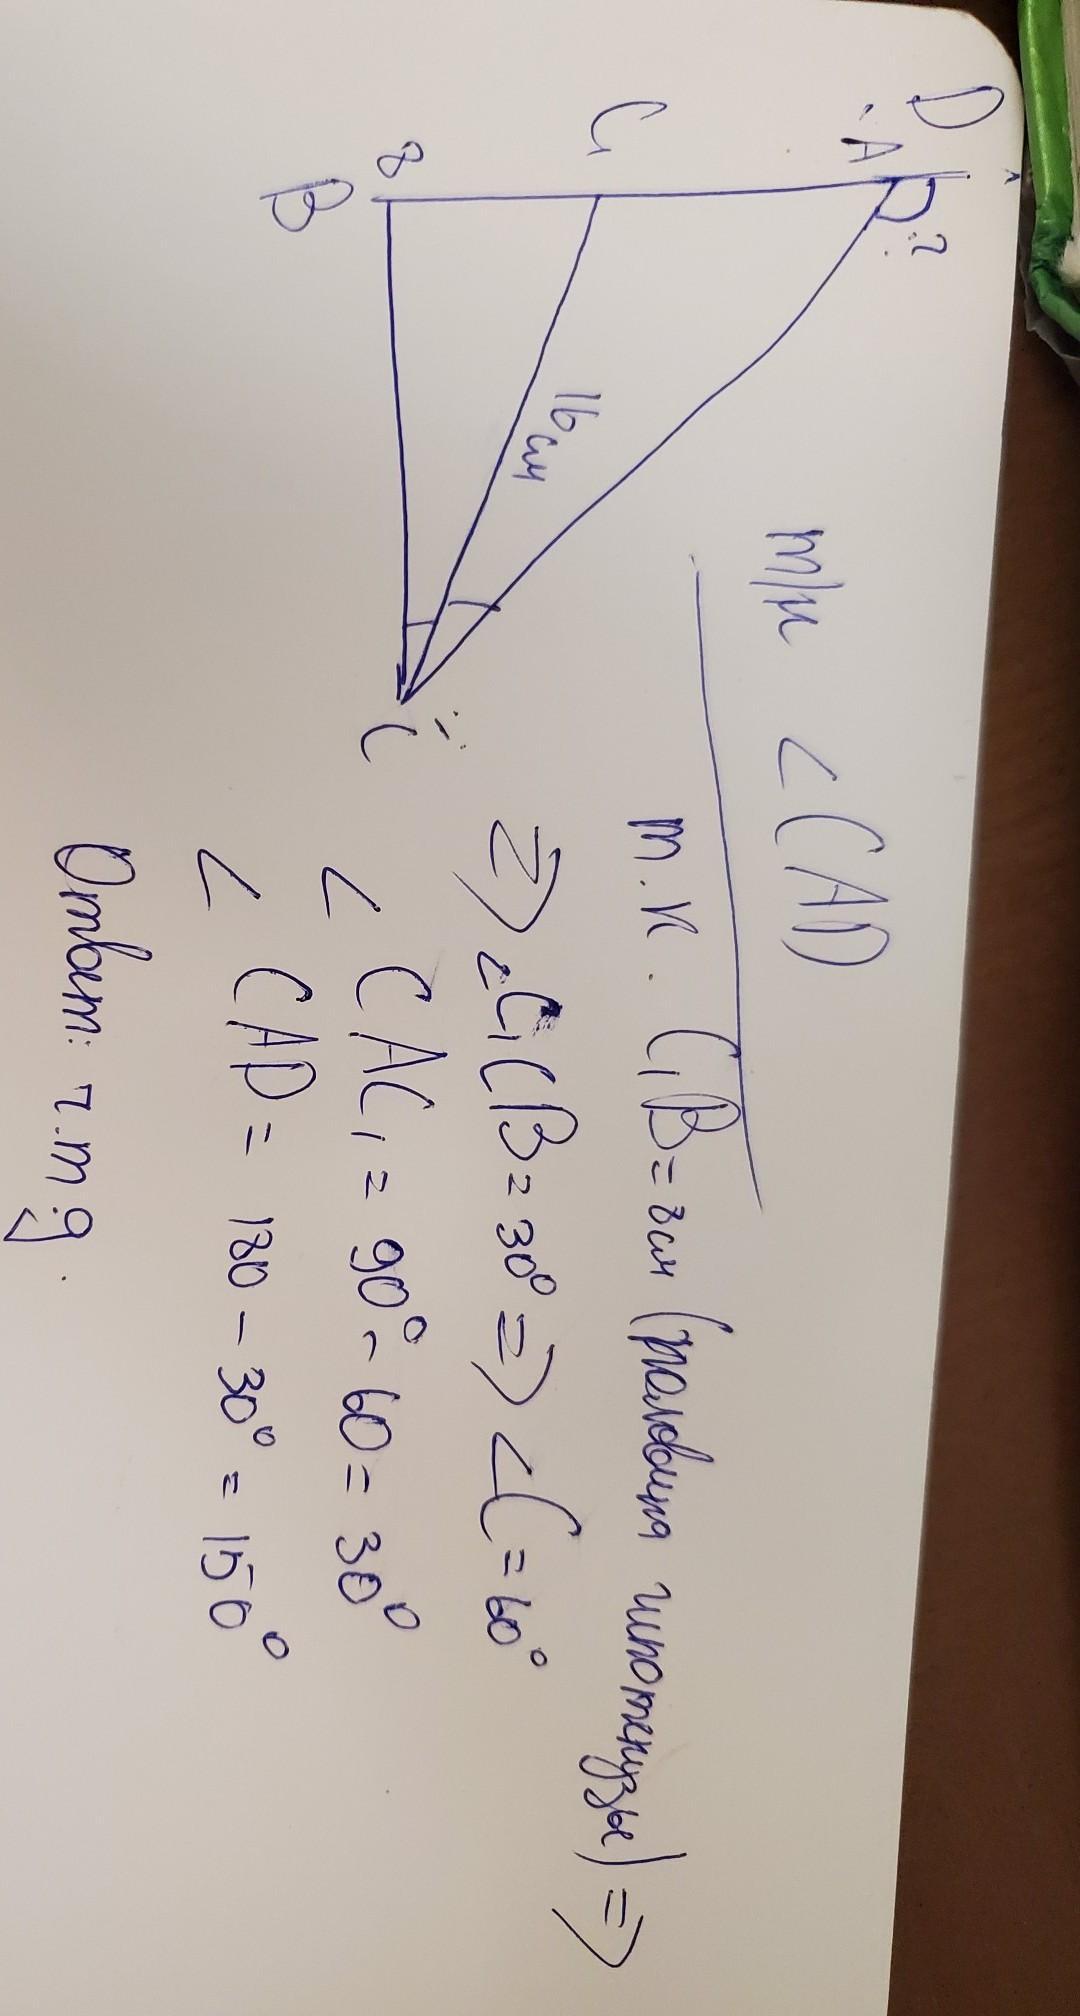 D
A
?
C₁
8
B
16 см
C
т/н ∠CAD
т.к. C₁B=8см (половина гипотенузы) =>
=> ∠C₁CB=30° => ∠C=60°
∠CAC₁=90°-60=30°
∠CAD=180-30°=150°
Ответ: ч.т.д.